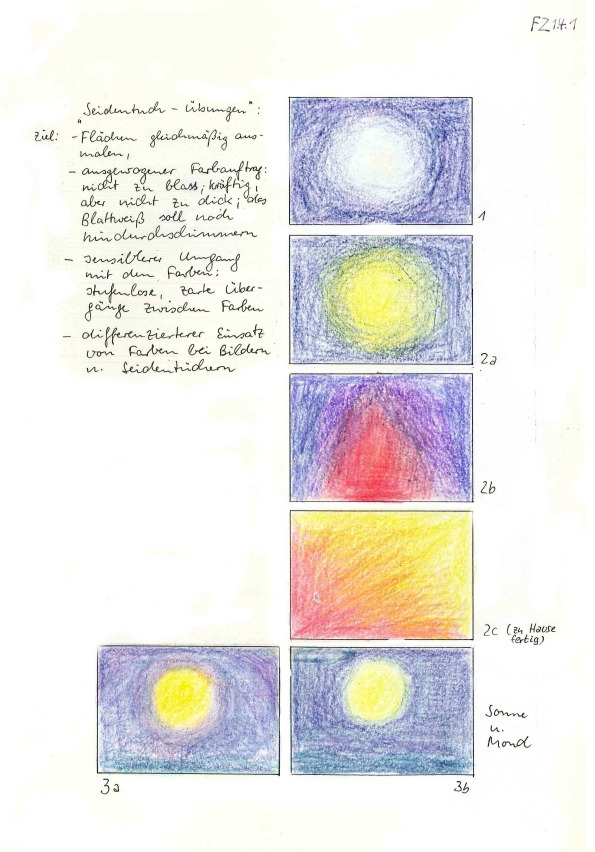 FZ 1.4.1
„Seidentuch - Übungen":
Ziel: - Flächen gleichmäßig aus-
malen,
- ausgewogener Farbauftrag:
nicht zu blass, kräftig,
aber nicht zu dick; das
Blattweiß soll noch
hindurchschimmern
- sensiblerer Umgang
mit den Farben:
stufenlose, zarte Über-
gänge zwischen Farben
- differenzierterer Einsatz
von Farben bei Bildern
u. Seidentüchern
1
2a
2b
2c (zu Hause
fertig)
3a
3b
Sonne
u.
Mond